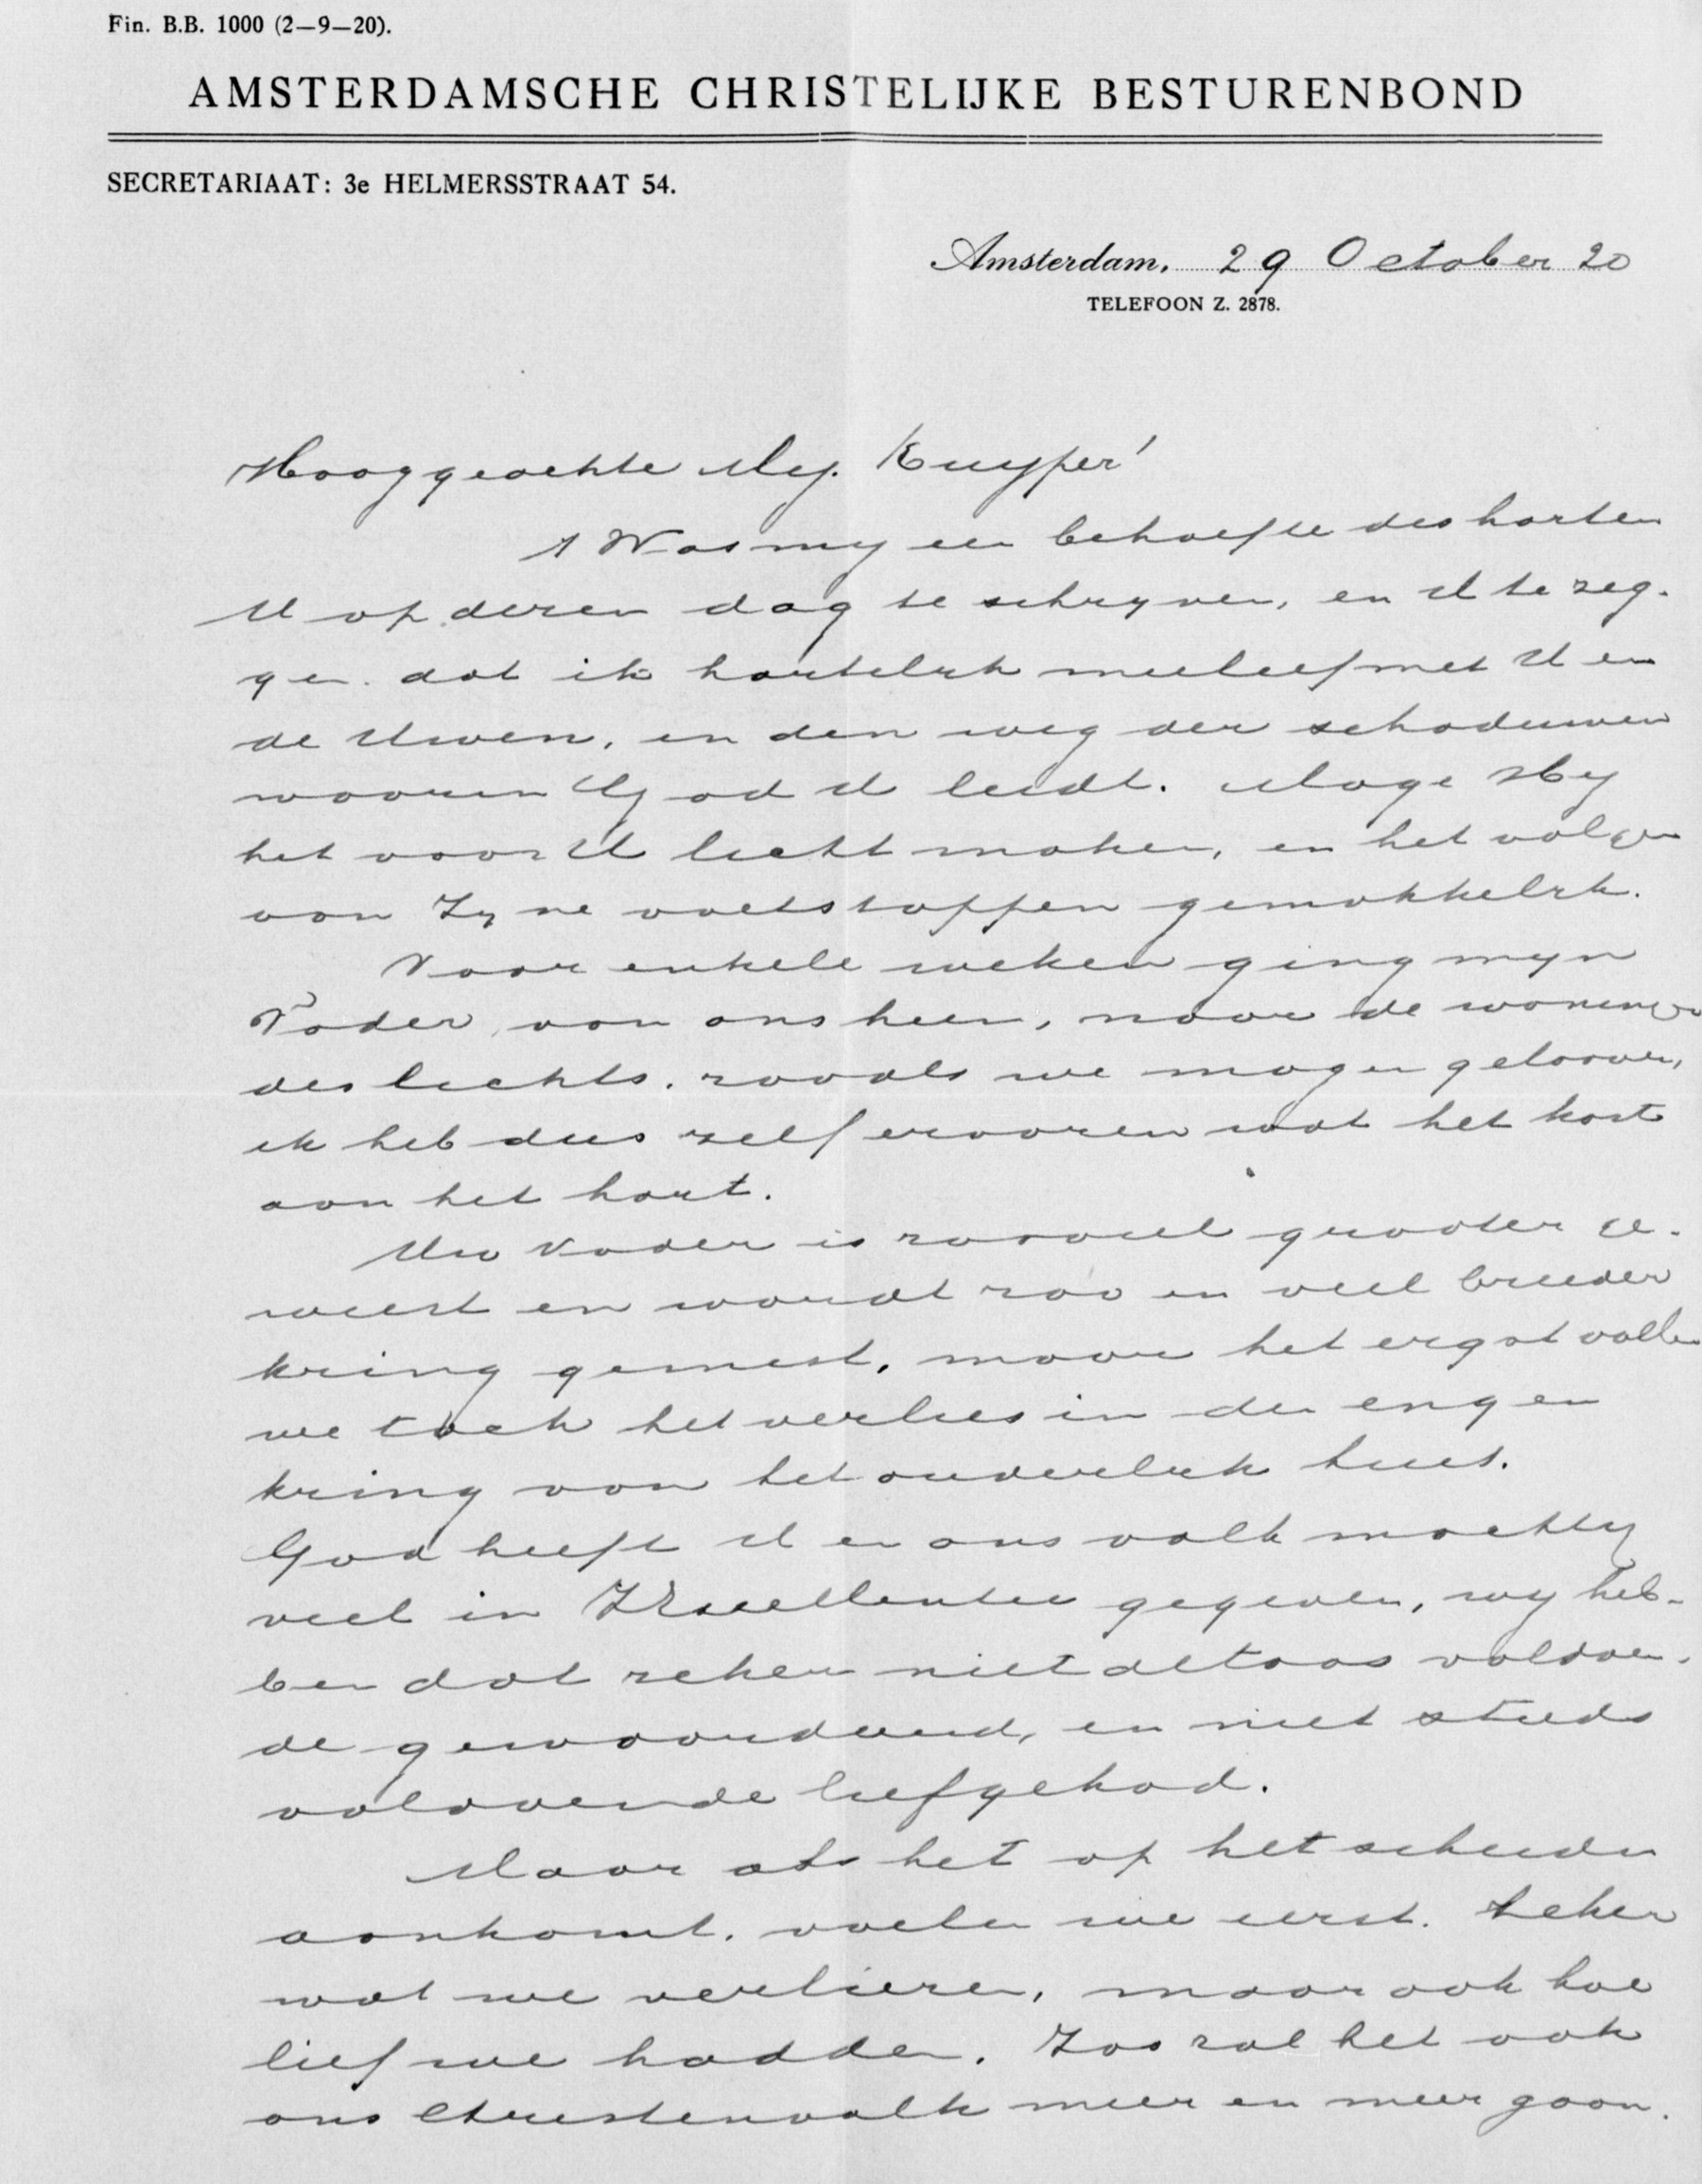 Fin. B.B. 1000 (2—9—20).
AMSTERDAMSCHE CHRISTELIJKE BESTURENBOND
SECRETARIAAT: 3e HELMERSSTRAAT 54.
Amsterdam, 29 October 20
TELEFOON Z. 2878.
Hooggeachte Mej. Kuyper!
't Was my een behoefte des harten
U op dezen dag te schryven, en U te zeg-
gen dat ik hartelyk meeleef met U en
de Uwen, in den weg der schaduwen
waarin God U leidt. Moge Hy
het voor U licht maken, en het volgen
van Zyne voetstappen gemakkelyk.
Voor enkele weken ging myn
Vader van ons heen, naar de woningen
des lichts, zooals we mogen gelooven,
ik heb dus zelf ervaren wat het kost
aan het hart.
Uw Vader is zooveel grooter ge-
weest en wordt zoo in veel breeder
kring gemist, maar het ergst voelen
we toch het verlies in den engen
kring van het ouderlyk huis.
God heeft U en ons volk machtig
veel in Z.Excellentie gegeven, wy heb-
ben dat zeker niet altoos voldoen-
de gewaardeerd, en niet steeds
voldoende liefgehad.
Maar als het op het scheiden
aankomt, voelen we eerst. Zeker
wat we verliezen, maar ook hoe
lief we hadden. Zoo zal het ook
ons Christenvolk meer en meer gaan.